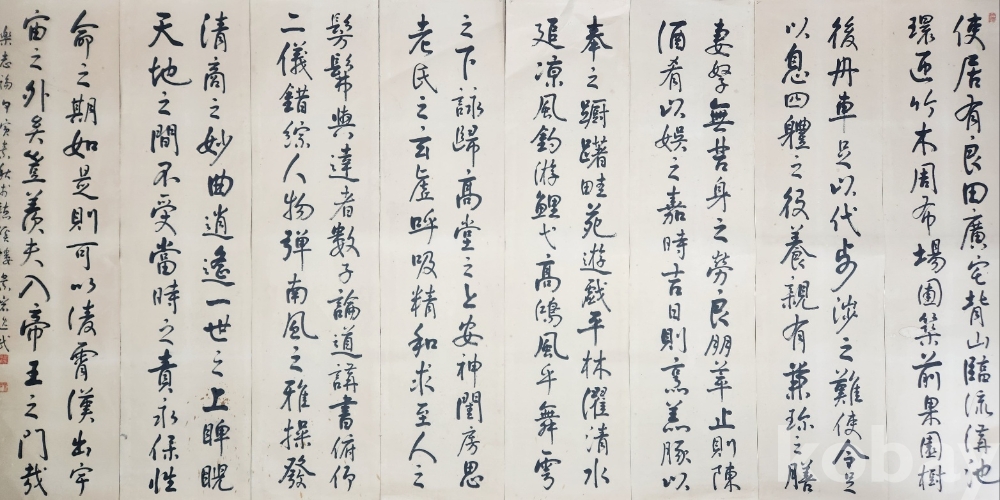 使居有良田廣宅背山臨流溝池
環匝竹木周布場圃築前果園樹
後舟車足以代步涉之難使令足
以息四體之役養親有兼珍之膳
妻孥無苦身之勞良朋萃止則陳
酒肴以娛之嘉時吉日則烹羔豚以
奉之躕躇畦苑遊戲平林濯清水
追凉風釣游鯉弋高鴻風乎舞雩
之下詠歸高堂之上安神閨房思
老氏之玄虛呼吸精和求至人之
髣髴與達者數子論道講書俯仰
二儀錯綜人物彈南風之雅操發
清商之妙曲逍遙一世之上睥睨
天地之間不受當時之責永保性
命之期如是則可以凌霄漢出宇
宙之外矣豈羨夫入帝王之門哉
樂志論
kobay